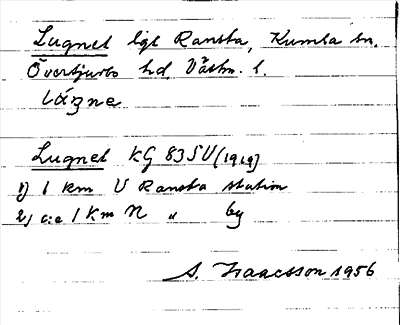 Lugnet lgt Ransta, Kumla sn.
Övertjurbo hd, Västm. l.
Lugnet KG 83 SV (1919)
1) 1 km V Ransta station
2) c:a 1 km N " by
S. Isaacsson 1956